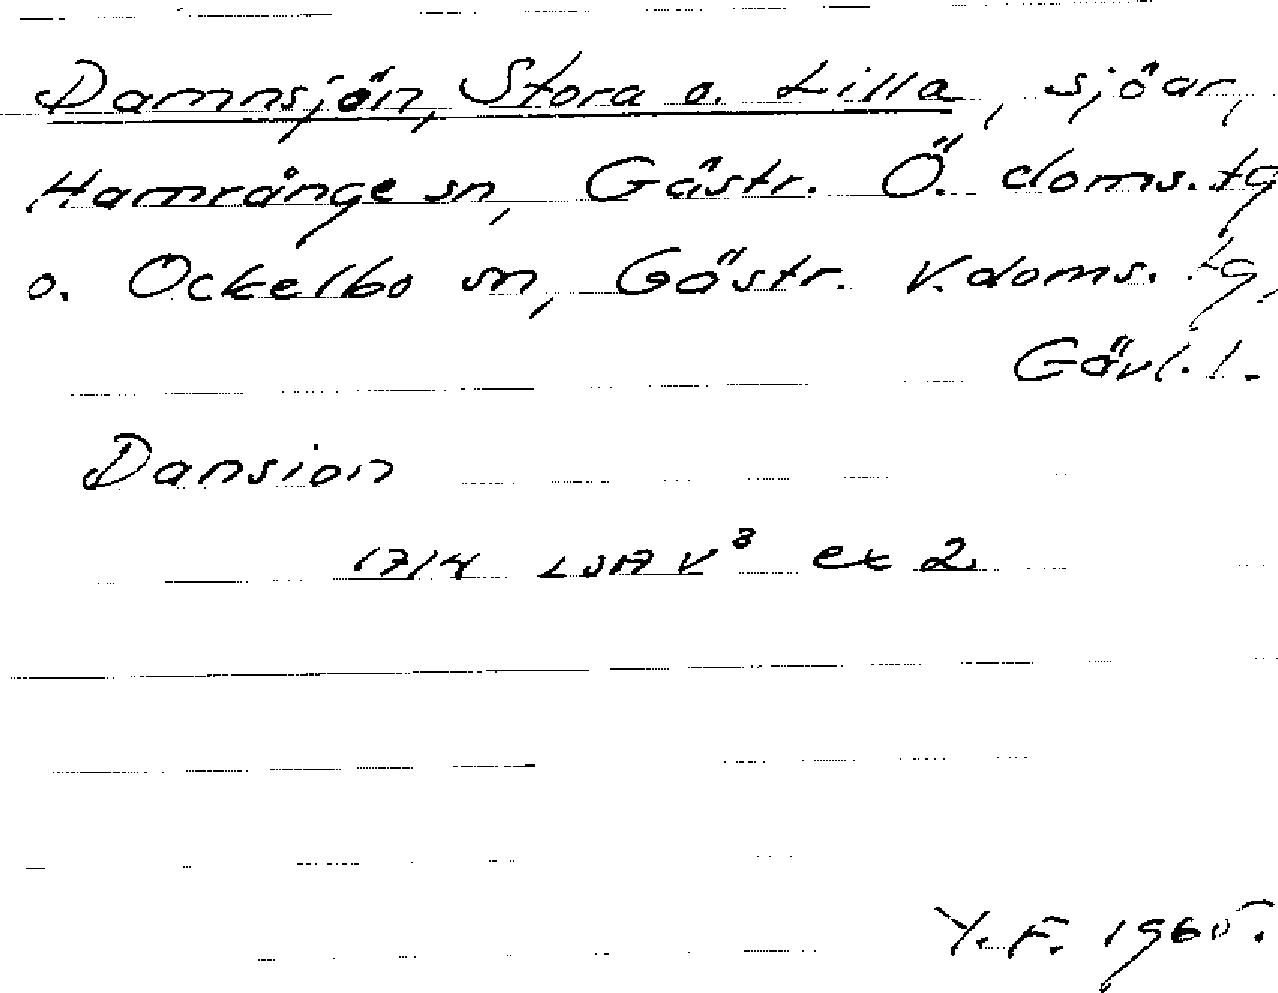 Damnsjön, Stora o. Lilla, sjöar,
Hamrånge sn, Gästr. Ö. doms. tg
o. Ockelbo sn, Gästr. V. doms. tg,
Gävl. l.
Dansion
1714 LSA V³ ex 2
Y. F. 1965.